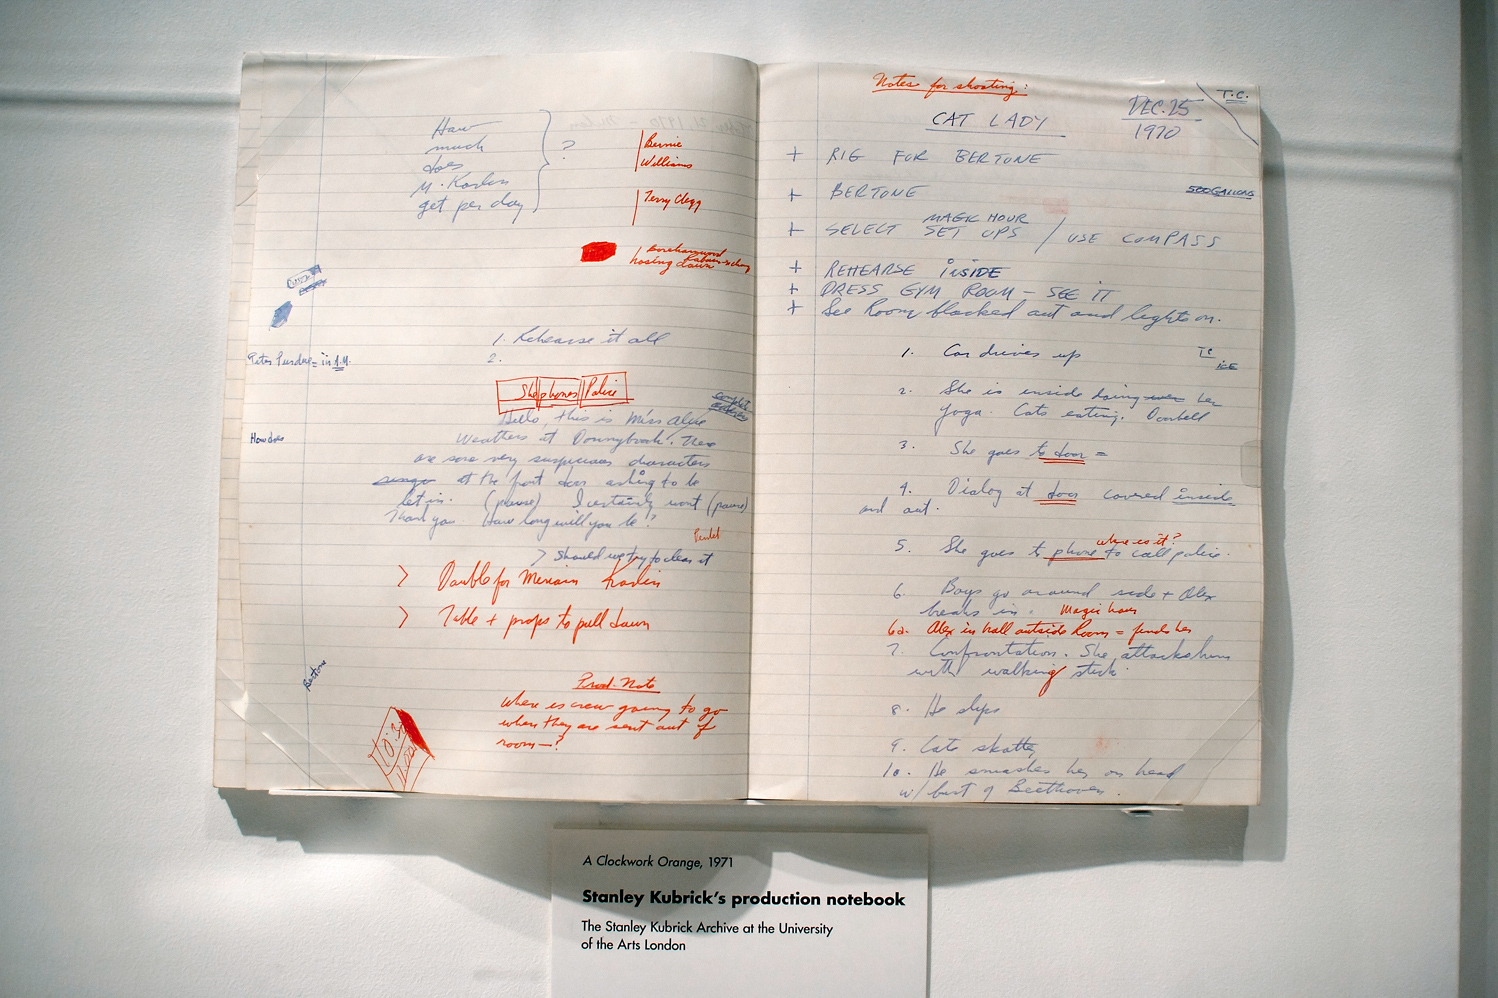 How
much
does
M. Karlin
get per day
?
Bernie
Williams
Terry Clegg
Borehamwood
hosing down
Peter Purdue = in A.M.
1. Rehearse it all
2.
She phones Police
Hello, this is Miss Alice
Weathers at Donnybrook. There
How does
are some very suspicious characters
at the front door asking to be
let in. (pause) I certainly wont (pause)
Thank you. How long will you be?
> Should we try to clear it
> Double for Meriam Karlin
> Table + props to pull down
Bertone
Prod. Note
Where is crew going to go
when they are sent out of
room—?
10:30
Notes for shooting:
T.C.
CAT LADY
DEC. 25
1970
+ RIG FOR BERTONE
+ BERTONE
500 GALLONS
MAGIC HOUR
+ SELECT SET UPS / USE COMPASS
+ REHEARSE INSIDE
+ DRESS GYM ROOM – SEE IT
+ See Room blacked out and lights on.
1. Car drives up
ICE
2. She is inside doing her
yoga. Cats eating. Doorbell
3. She goes to door =
4. Dialog at door covered inside
and out.
where is it?
5. She goes to phone to call police.
6. Boys go around side + Alex
breaks in. Magic hour
6a. Alex in hall outside Room = finds her
7. Confrontation. She attacks him
with walking stick
8. He slips
9. Cats skatter
10. He smashes her on head
w/ bust of Beethoven.
A Clockwork Orange, 1971
Stanley Kubrick's production notebook
The Stanley Kubrick Archive at the University
of the Arts London